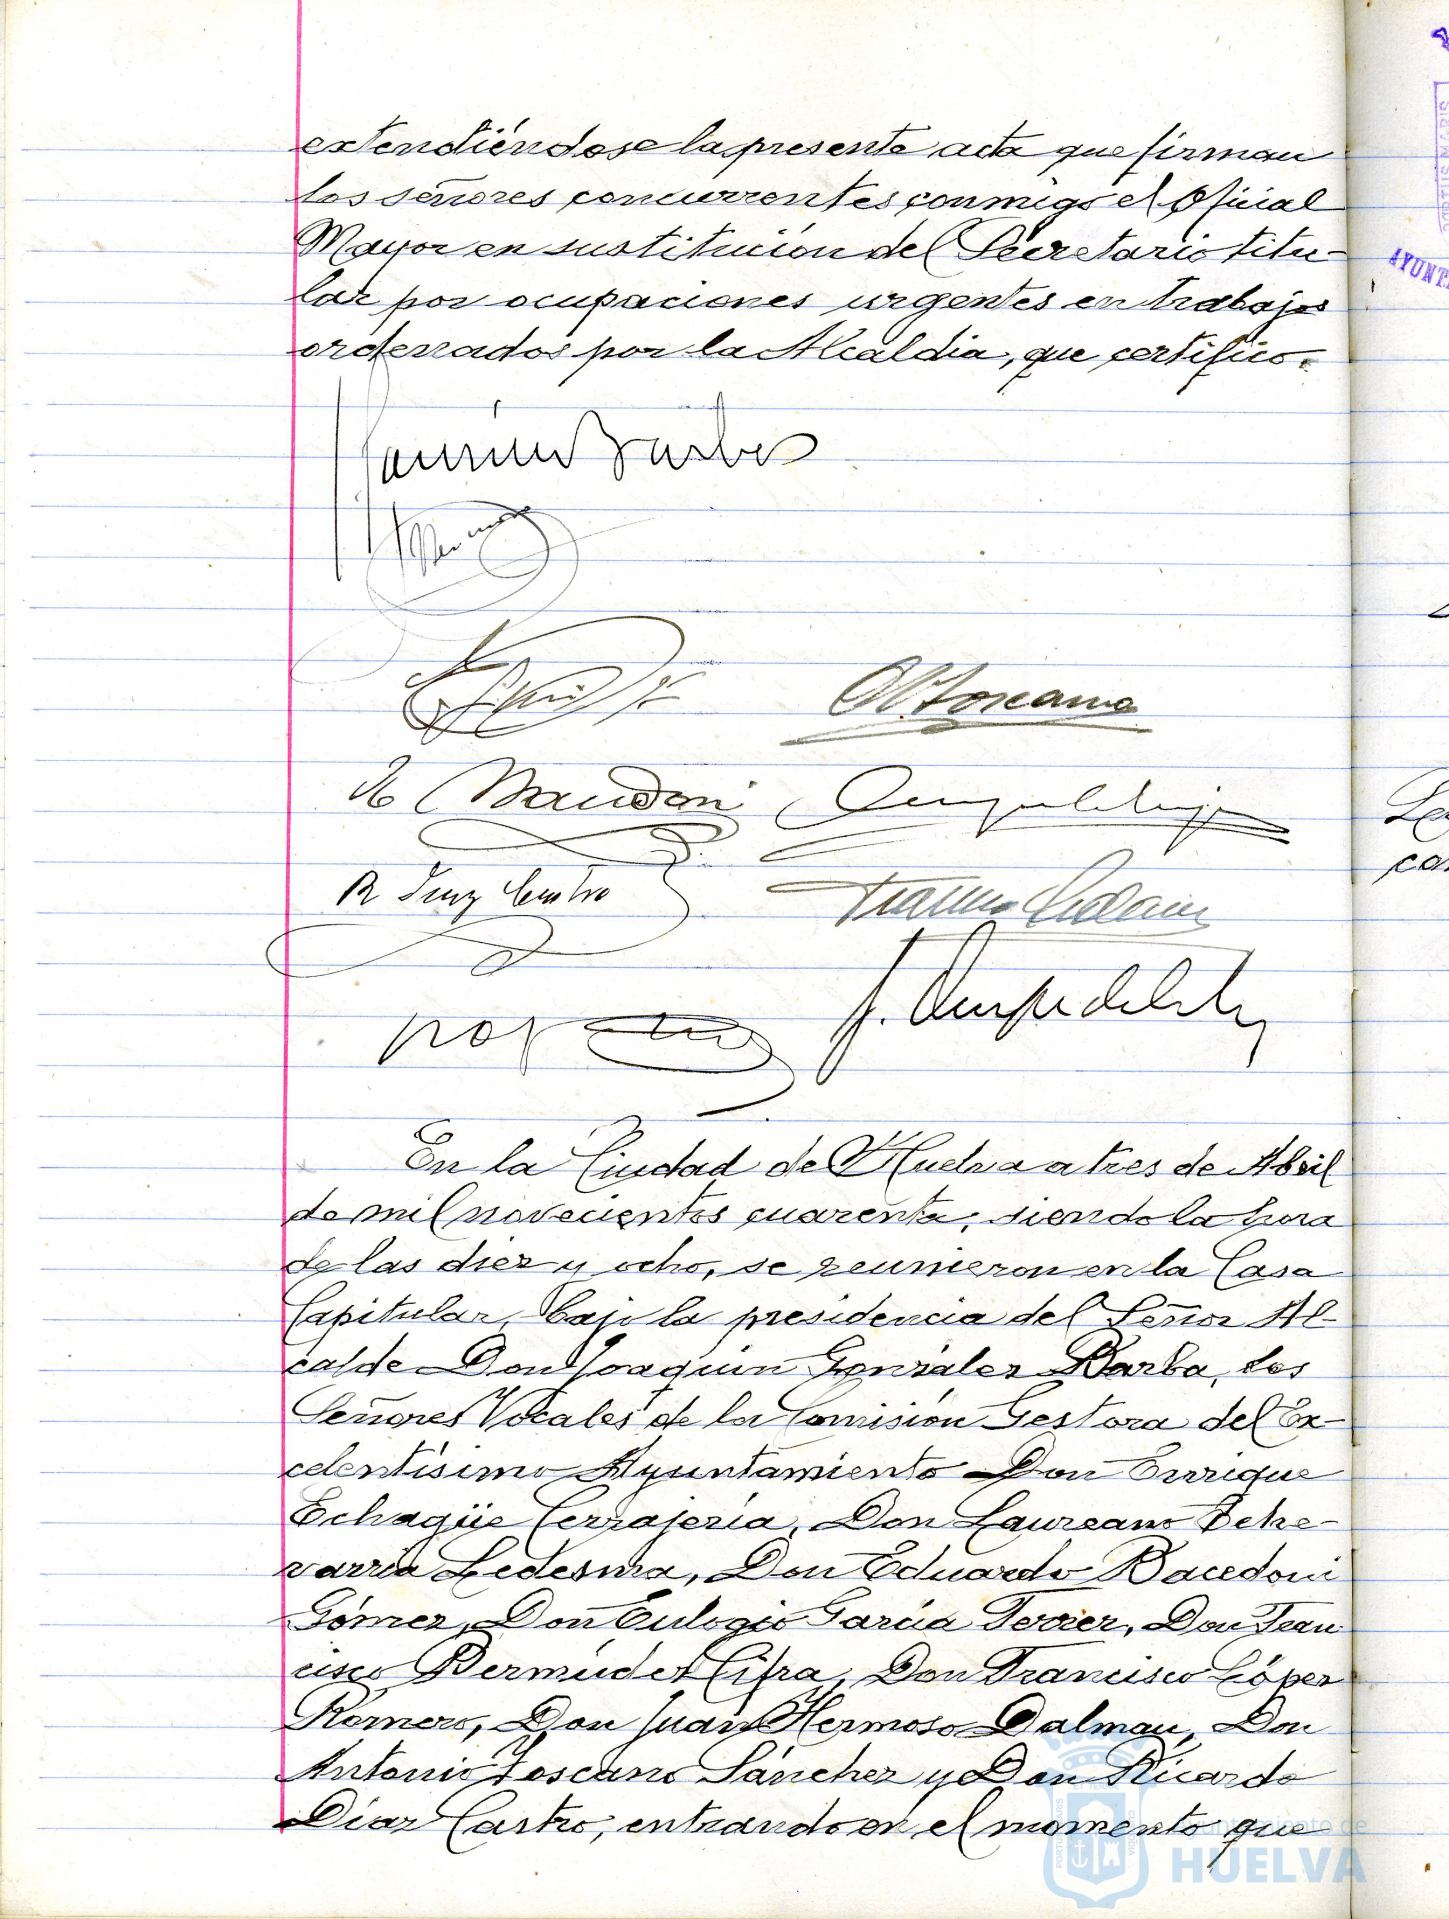 extendiéndose la presente acta que firman
los señores concurrentes conmigo el Oficial
Mayor en sustitución del Secretario titu-
lar por ocupaciones urgentes en trabajos
ordenados por la Alcaldia, que certifico.
Joaquín Barba
A Toscano
R Diaz Castro
En la Ciudad de Huelva a tres de Abril
de mil novecientos cuarenta, siendo la hora
de las diez y ocho, se reunieron en la Casa
Capitular, bajo la presidencia del Señor Al-
calde Don Joaquin González Barba, los
Señores Vocales de la Comisión Gestora del Ex-
celentísimo Ayuntamiento Don Enrique
Echagüe Cerrajería, Don Laureano Eche-
varria Ledesma, Don Eduardo Bacedoni
Gómez, Don Eulogio García Terrier, Don Fran
cisco Bermúdez Cifra, Don Francisco López
Romero, Don Juan Hermoso Dalmau, Don
Antonio Toscano Sánchez y Don Ricardo
Díaz Castro, entrando en el momento que
Ayuntamiento de
HUELVA